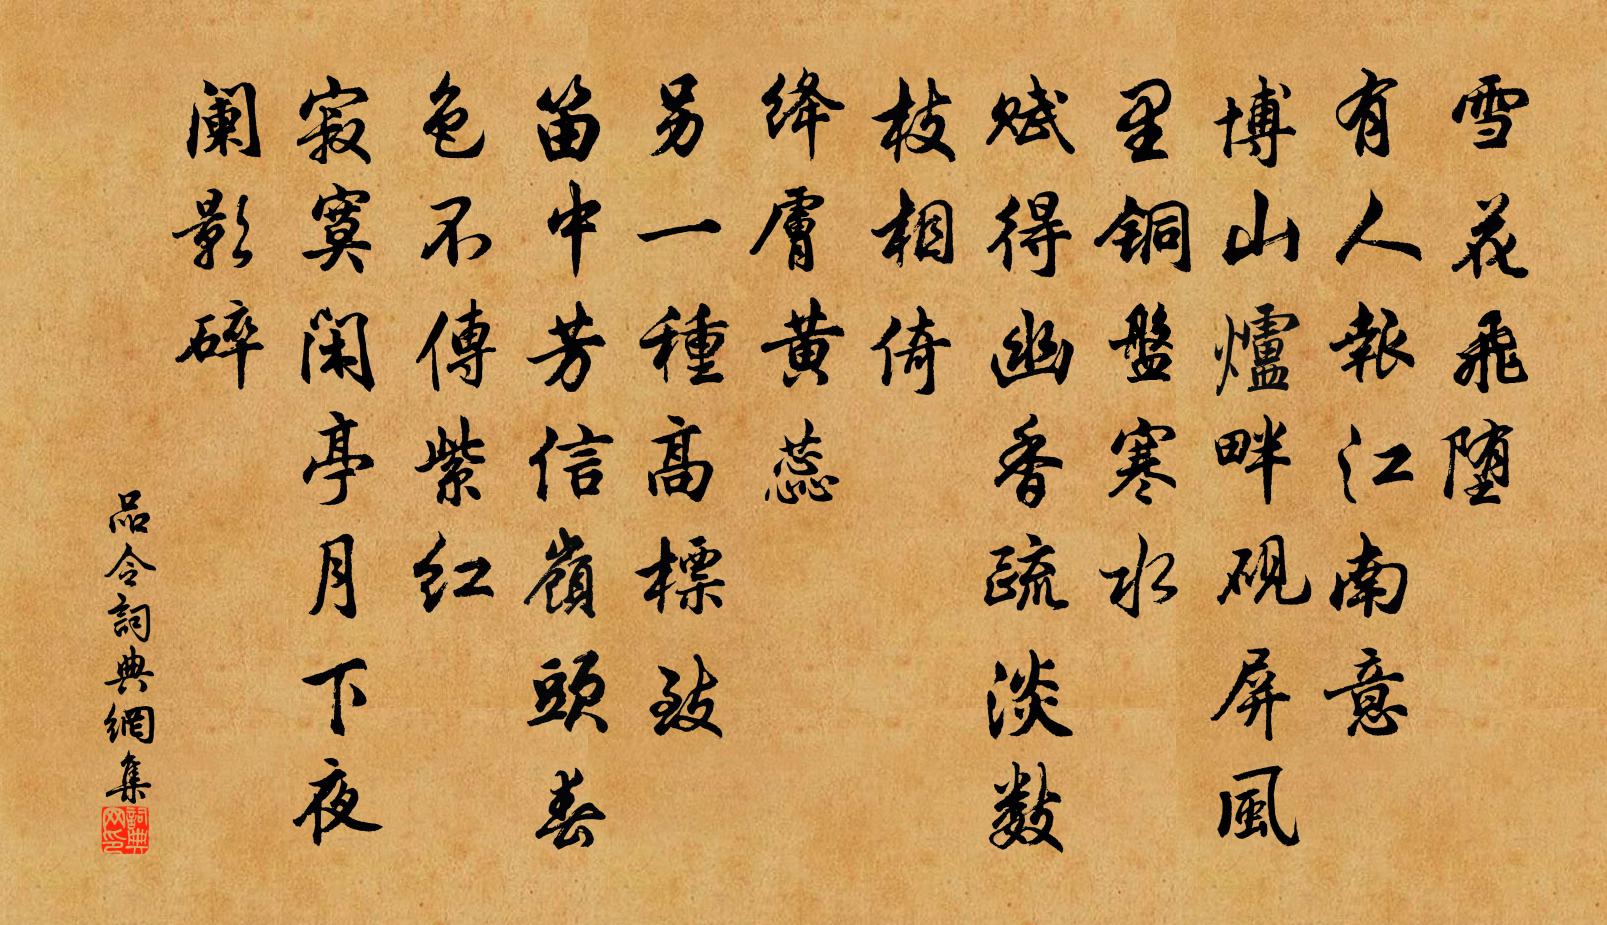 雪花飛堕
有人報江南意
博山爐畔硯屏風
里銅盤寒水
賦得幽香疏淡數
枝相倚
絳膚黄蕊
另一種高標致
笛中芳信嶺頭春
色不傳紫紅
寂寞闲亭月下夜
阑影碎
品令詞典網集
詞典网印